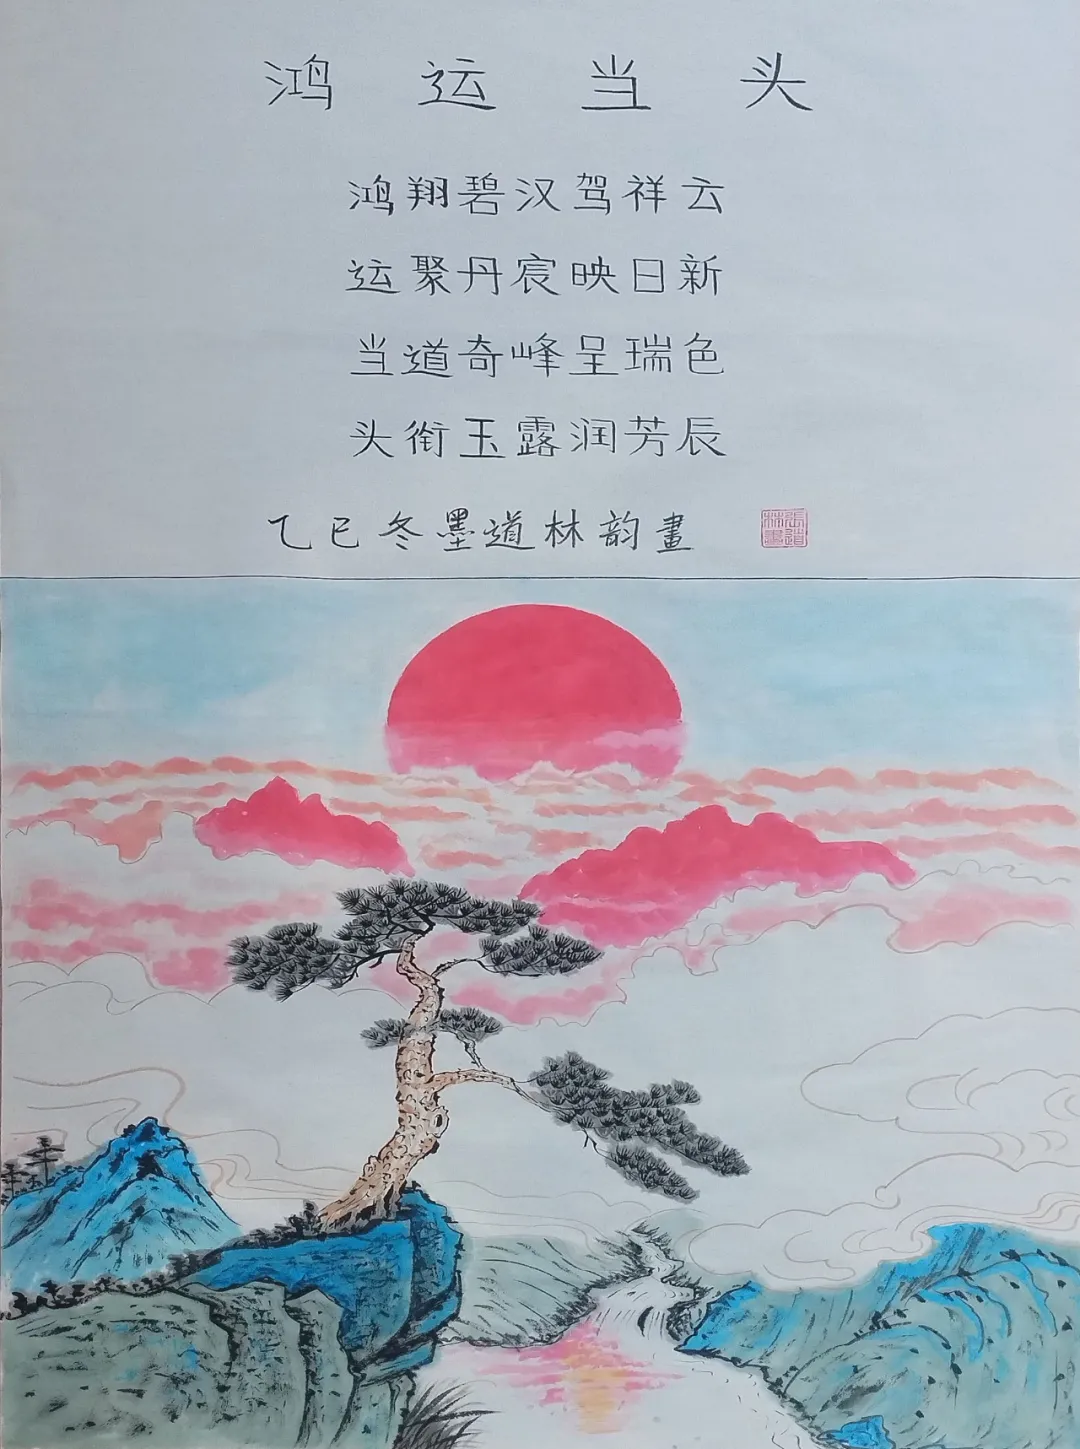 鸿运当头
鸿翔碧汉驾祥云
运聚丹宸映日新
当道奇峰呈瑞色
头衔玉露润芳辰
乙巳冬墨道林韵畫
張道林畫